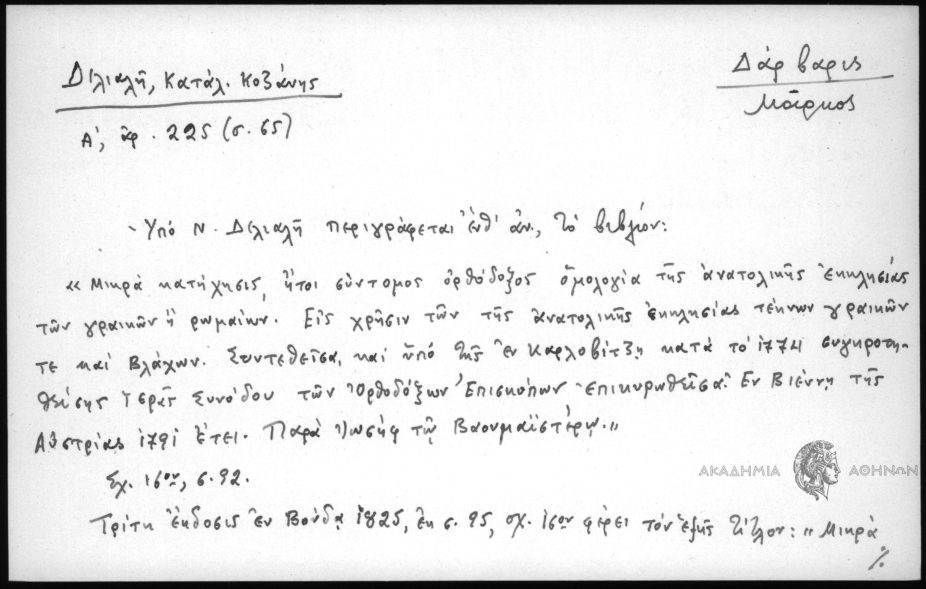 Δελιαλῆ, Κατάλ. Κοζάνης
Δάρβαρις
Μᾶρκος
Α', ἀρ. 225 (σ. 65)
Ὑπὸ Ν. Δελιαλῆ περιγράφεται ἐνθ' ἀν., τὸ βιβλίον:
«Μικρὰ κατήχησις, ἤτοι σύντομος ὀρθόδοξος ὁμολογία τῆς ἀνατολικῆς ἐκκλησίας
τῶν γραικῶν ἢ ρωμαίων. Εἰς χρῆσιν τῶν τῆς ἀνατολικῆς ἐκκλησίας τέκνων γραικῶν
τε καὶ Βλάχων. Συντεθεῖσα, καὶ ὑπὸ τῆς ἐν Καρλοβίτζῃ κατὰ τὸ 1774 συγκροτη-
θείσης Ἱερᾶς Συνόδου τῶν Ὀρθοδόξων Ἐπισκόπων ἐπικυρωθεῖσα. Ἐν Βιέννῃ τῆς
Αὐστρίας 1791 ἔτει. Παρὰ Ἰωσὴφ τῷ Βαουμαϊστέρῳ.»
Σχ. 16ον, σ. 92.
ΑΚΑΔΗΜΙΑ ΑΘΗΝΩΝ
Τρίτη ἔκδοσις ἐν Βούδᾳ 1825, ἐκ σ. 95, σχ. 16ον φέρει τὸν ἑξῆς τίτλον: «Μικρὰ
%